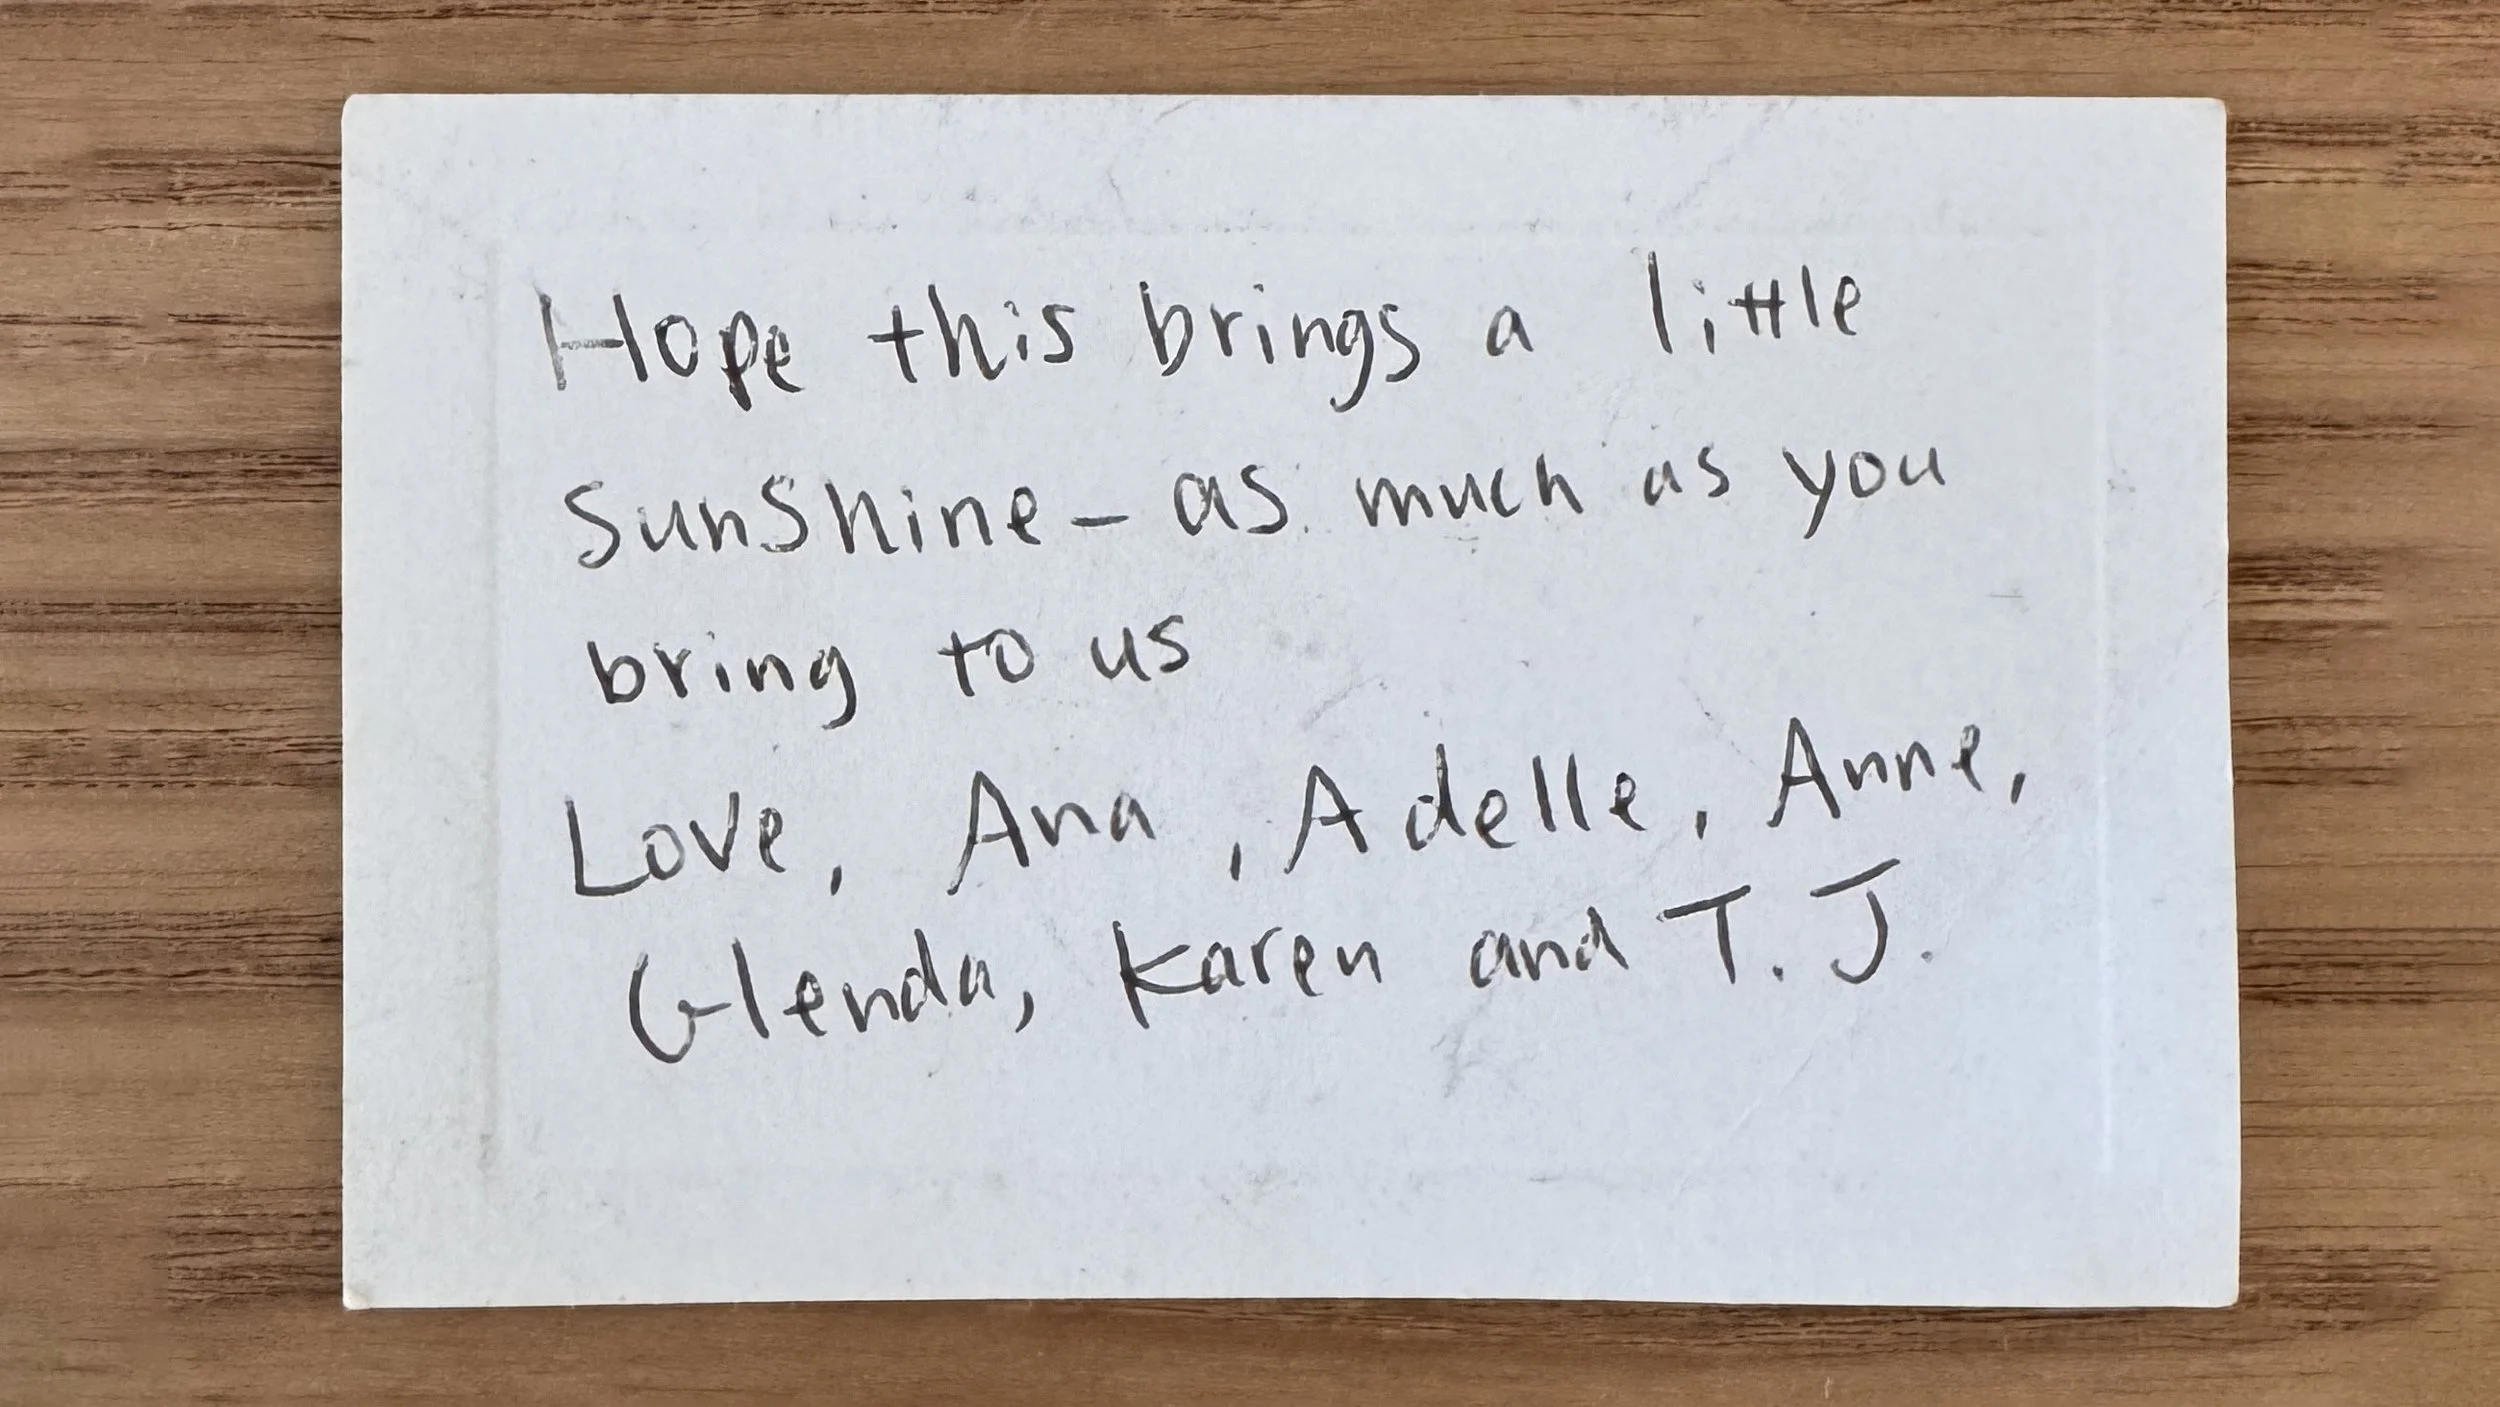 Hope this brings a little
sunshine - as much as you
bring to us
Love, Ana, Adelle, Anne,
Glenda, Karen and T.J.